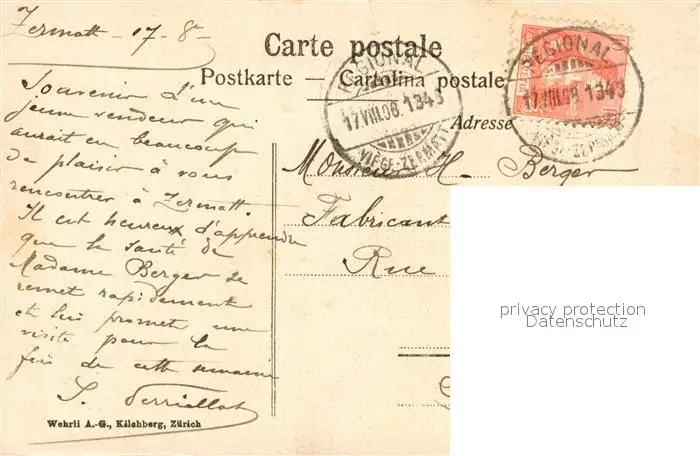 Zermatt - 17-8-
Carte postale
Postkarte — Cartolina postale
Adresse
REGIONAL
17.VIII.08.1343
VIÈGE-ZERMATT
REGIONAL
17.VIII.08.1343
VIÈGE-ZERMATT
Souvenir d'un
jeune vendeur qui
aurait eu beaucoup
de plaisir à vous
rencontrer à Zermatt.
Il est heureux d'apprendre
que la santé de
Madame Berger se
remet rapidement
et lui promet une
visite pour la
fin de cette semaine
Monsieur H. Berger
Fabricant
Rue
privacy protection
Datenschutz
Wehrli A.-G., Kilchberg, Zürich